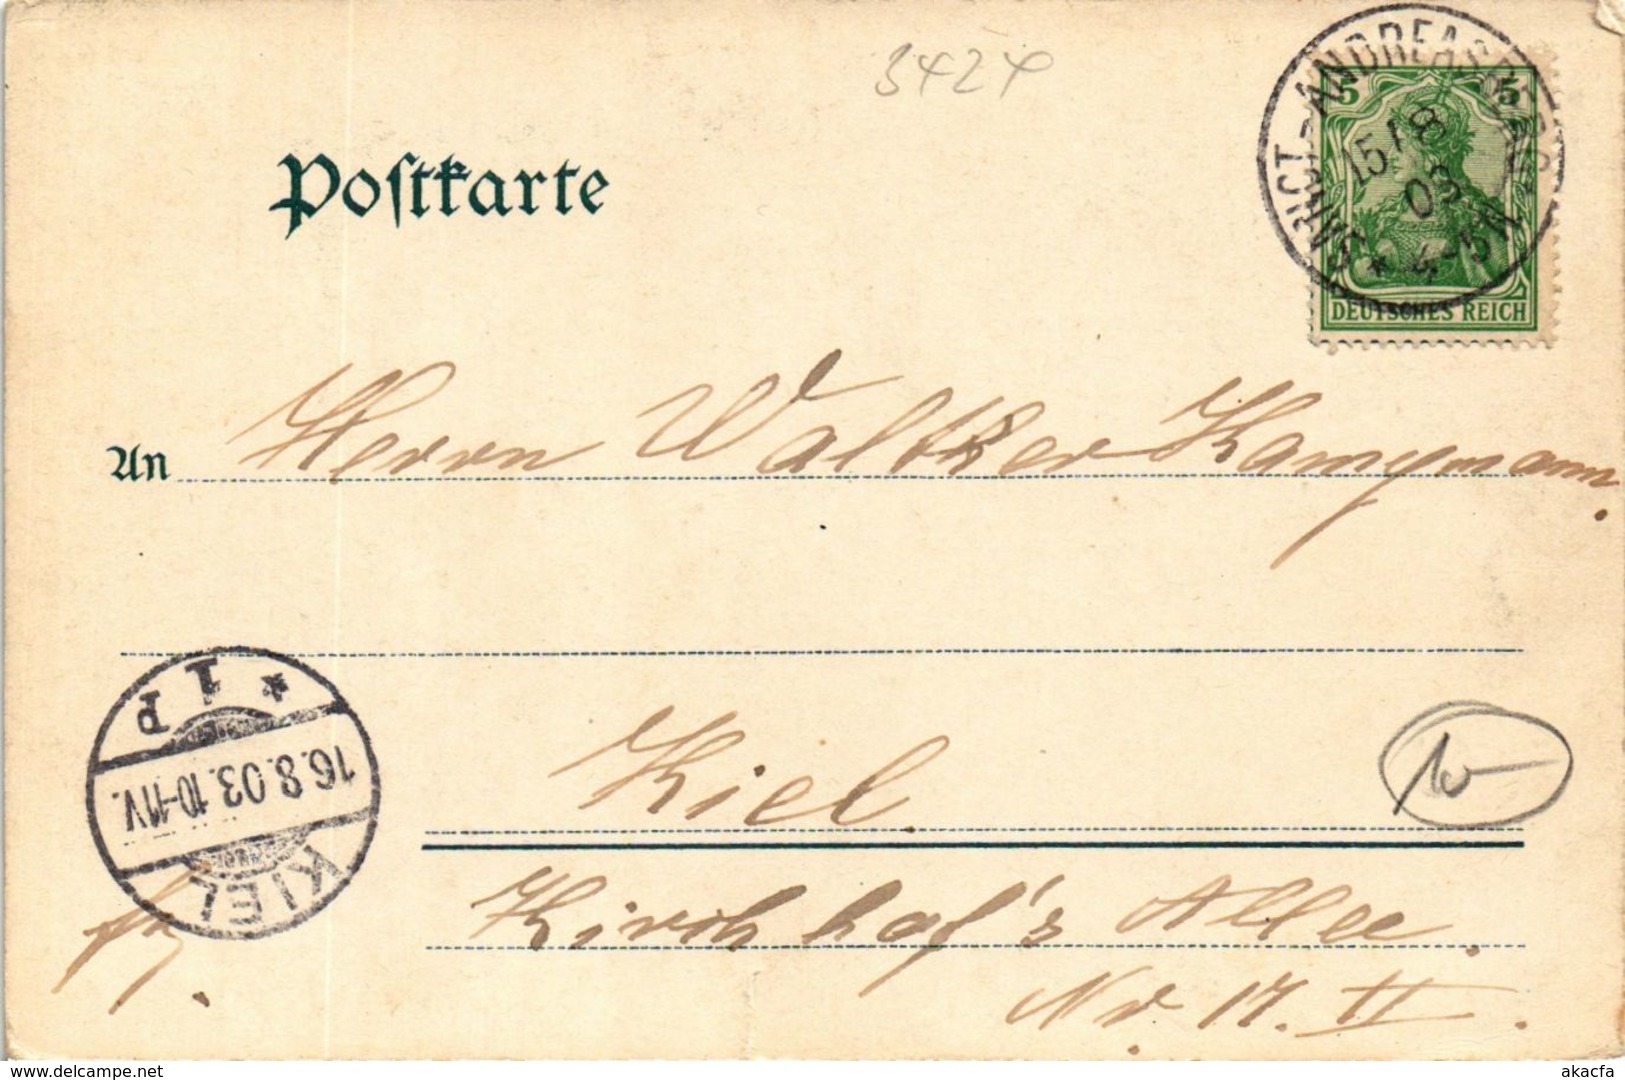 3424
Postkarte
SANKT-ANDREASBERG
5 5
15/8
03
* 4-5N
DEUTSCHES REICH
An Herrn Walther Kampmann.
* 1 P
16.8.03.10-11V.
KIEL
Kiel.
10
Kirchhof's Allee.
Nr 17. II.
www.delcampe.net
akacfa